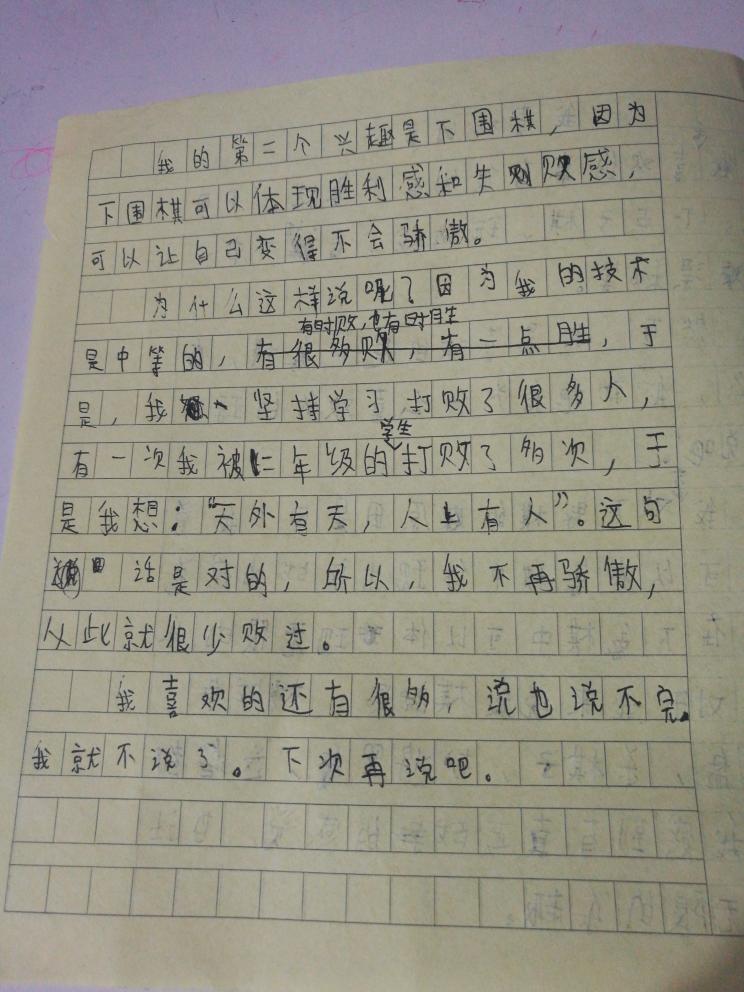 我的第二个兴趣是下围棋，因为
下围棋可以体现胜利感和失败感，
可以让自己变得不会骄傲。
为什么这样说呢？因为我的技术
有时败，也有时胜
是中等的，有很多败，有一点胜，于
是，我坚持学习，打败了很多人，
学生
有一次我被二年级的打败了多次，于
是我想：“天外有天，人上有人”。这句
话是对的，所以，我不再骄傲，
从此就很少败过。
我喜欢的还有很多，说也说不完。
我就不说了。下次再说吧。